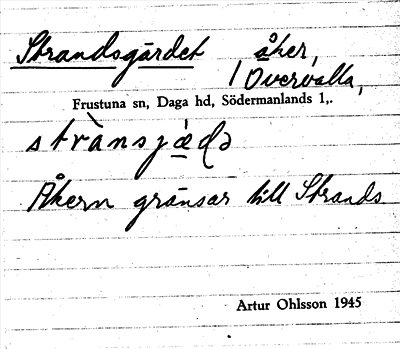 Strandsgärdet åker,
i Övervalla,
Frustuna sn, Daga hd, Södermanlands l,.
strànsjæ̀ḍə
Åkern gränsar till Strands
Artur Ohlsson 1945